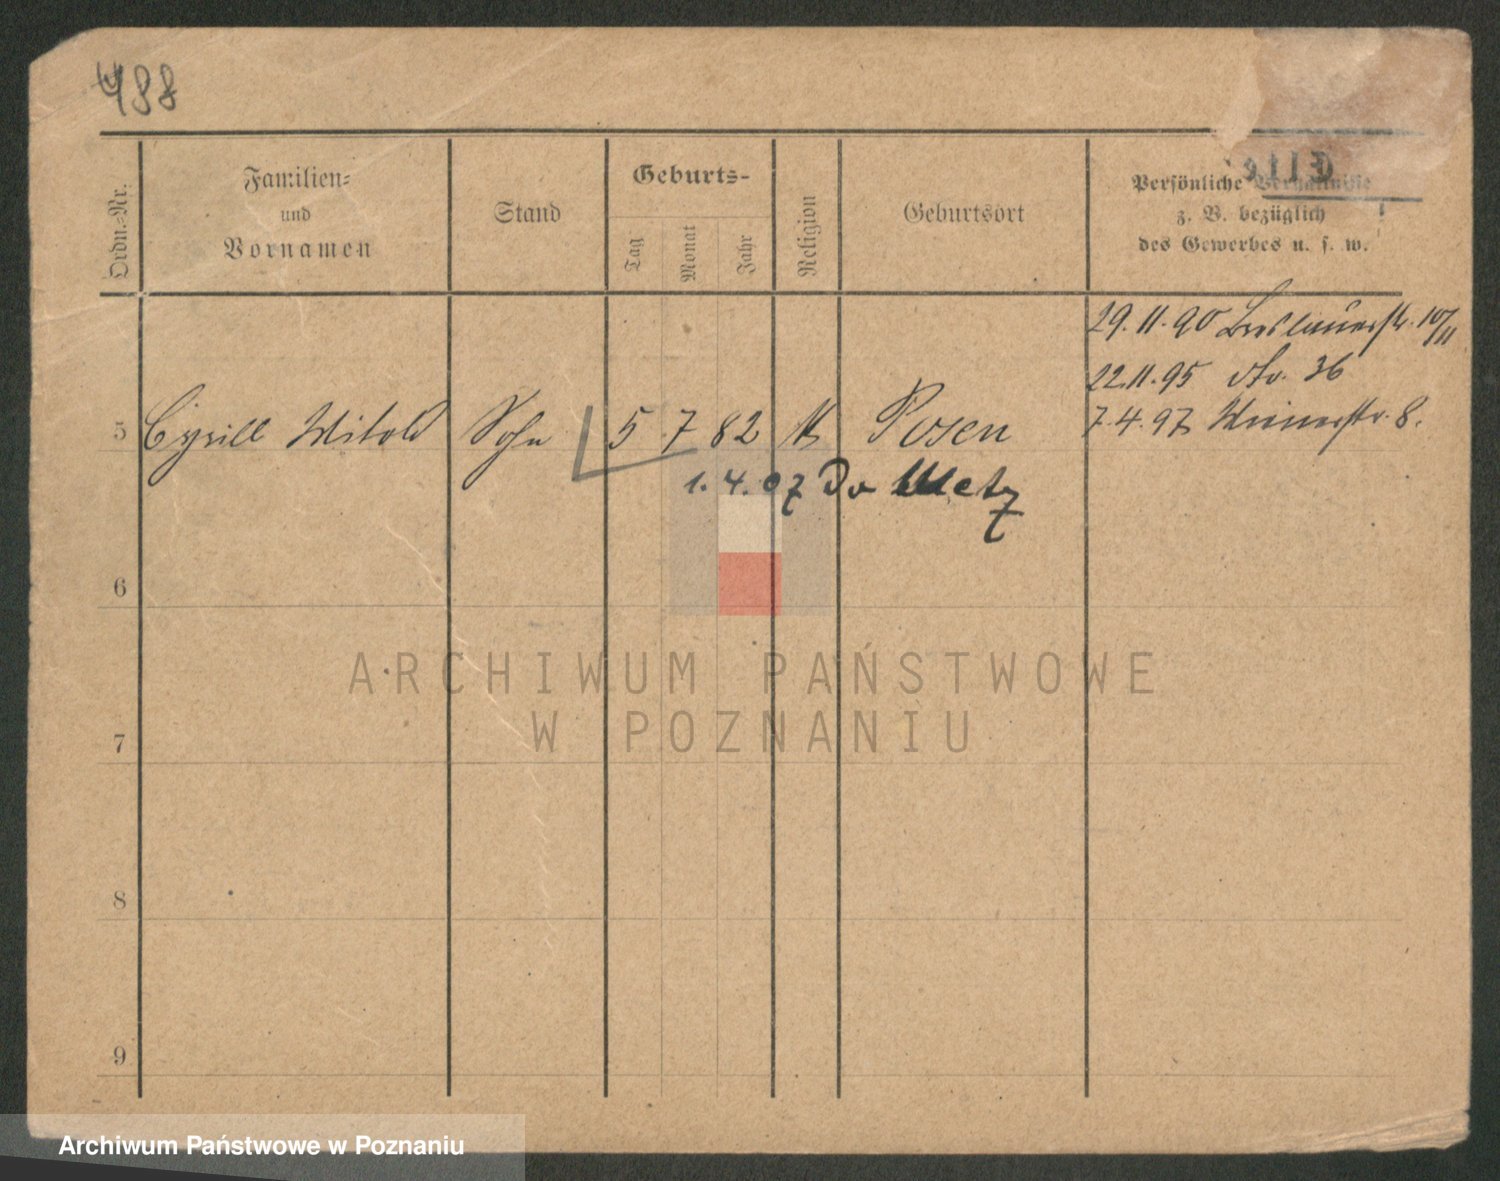 488
Ordn.-Nr.
Familien-
und
Vornamen
Stand
Geburts-
Tag
Monat
Jahr
Religion
Geburtsort
Persönliche Verhältnisse
z. B. bezüglich
des Gewerbes u. s. w.
29.11.90 Breslauerstr. 10/11
22.11.95 dto. 36
5 Cyrill Witold Sohn 5 7 82 Posen
7.4.97 Wienerstr. 8.
1.4.07 Do Metz
6
ARCHIWUM PAŃSTWOWE
W POZNANIU
7
8
9
Archiwum Państwowe w Poznaniu